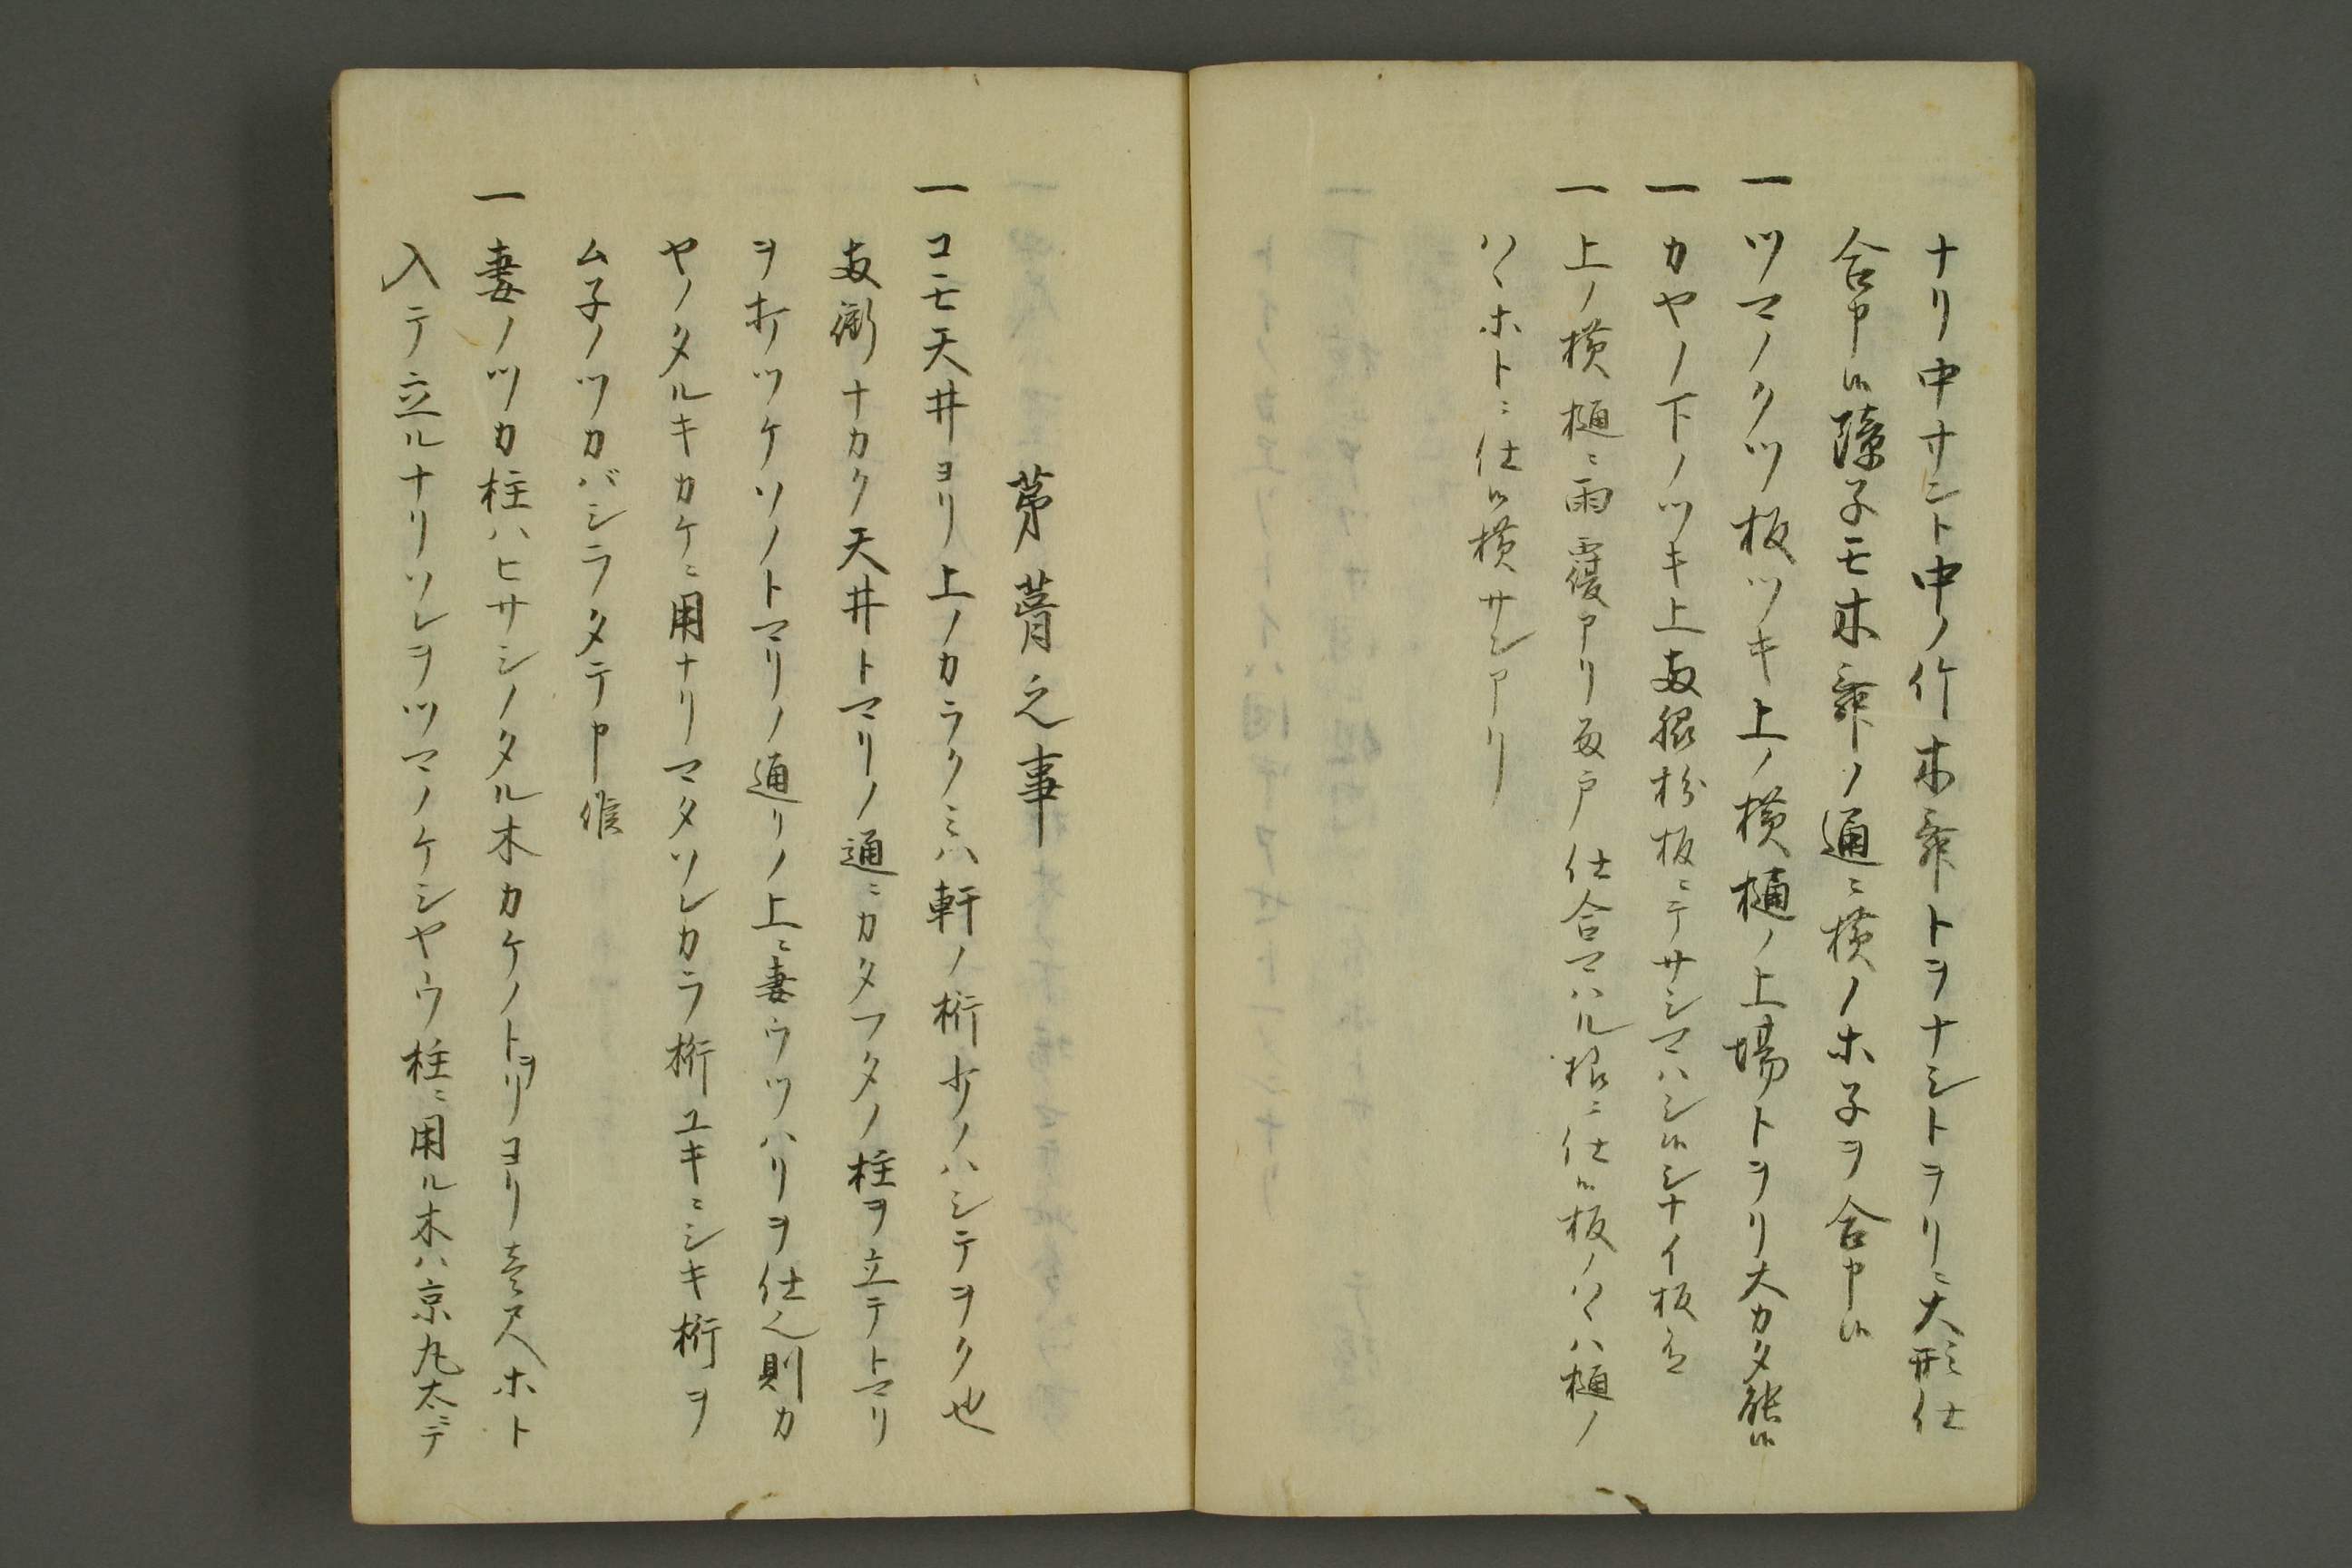 ナリ中サント中ノ竹木舞トヲナシトヲリニ大形仕
合申候障子モ木舞ノ通ニ横ノホ子ヲ合申候
一ツマノクツ板ツキ上ノ横樋ノ上場トヲリ大カタ能候
一カヤノ下ノツキ上両眼杉板ニテサシマハシ候シナイ板
一上ノ横樋ニ雨覆アリ両戸仕合マハル様ニ仕候板ノハヾハ樋ノ
ハヾホトニ仕候横サンアリ
茅葺之事
一コモ天井ヨリ上ノカラクミハ軒ノ桁ヲノハシテヲク也
両衛ナカク天井トマリノ通ニカタフタノ柱ヲ立テトマリ
ヲ打ツケソノトマリノ通リノ上ニ妻ウツハリヲ仕候則カ
ヤノタルキカケニ用ナリマタソレカラ桁ユキニシキ桁ヲ
ム子ノツカバシラタテ申候
一妻ノツカ柱ハヒサシノタル木カケノトヲリヨリ壱尺ホト
入テ立ルナリソレヲツマノケシヤウ柱ニ用ル木ハ京丸太デ